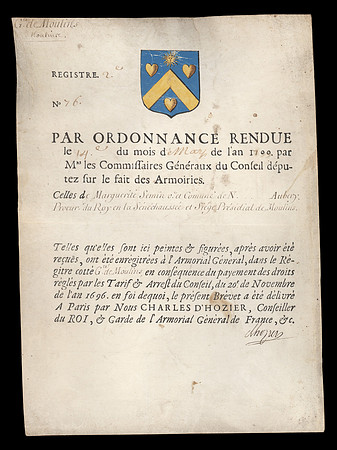 Gté. de Moulins
Moulins.
REGISTRE. 2e
No 76.
PAR ORDONNANCE RENDUE
le 14e du mois de May de l'an 1700. par
Mrs les Commissaires Généraux du Conseil dépu-
tez sur le fait des Armoiries.
Celles de Marguerite Semin Ve. et Commune de N. Aubery,
Procur. du Roy en la Sénéchaussée et Siège Présidial de Moulins.
Telles qu'elles sont ici peintes & figurées, après avoir été
reçues, ont été enregitrées à l'Armorial Général, dans le Re-
gitre cotté Gté. de Moulins, en conséquence du payement des droits
reglés par les Tarif & Arrest du Conseil, du 20e. de Novembre
de l'an 1696. en foi dequoi, le présent Brévet a été délivré
A Paris par Nous CHARLES D'HOZIER, Conseiller
du ROI, & Garde de l'Armorial Général de France, &c.
d'hozier